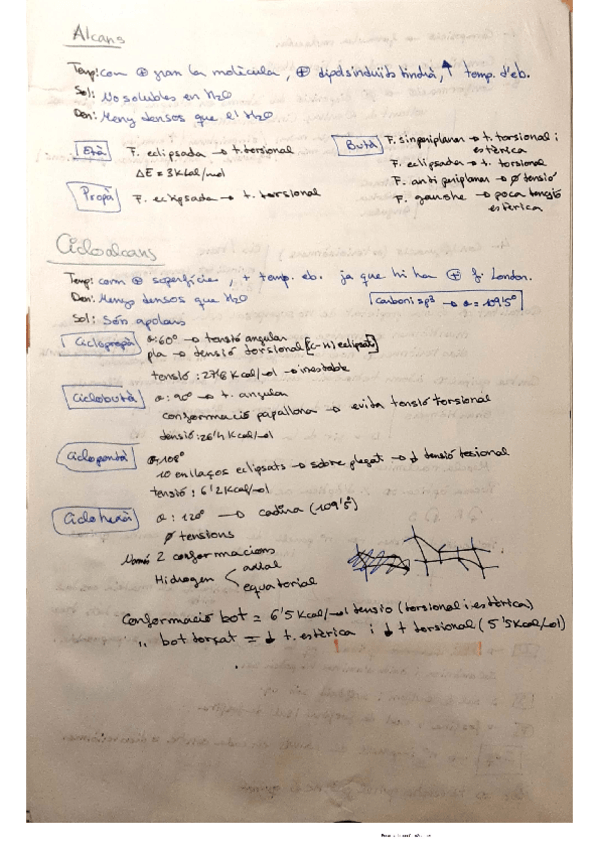 Alcans
Temp: com ⊕ gran la molècula, ⊕ dipols induïts tindrà, ↑ temp. d'eb.
Sol: No solubles en H2O
Den: Menys densos que el H2O
Età F. eclipsada → t. torsional
ΔE = 3 kcal/mol
Propà F. eclipsada → t. torsional
Butà F. sinperiplanar → t. torsional i
estèrica
F. eclipsada → t. torsional
F. antiperiplanar → ∅ tensió
F. gauche → poca tensió
estèrica
Cicloalcans
Temp: com ⊕ superfície, + temp. eb. ja que hi ha ⊕ f. London.
Den: Menys densos que H2O
carboni sp3 → α = 109'5°
Sol: Són apolars
Ciclopropà α: 60° → tensió angular
pla → tensió torsional [C-H) eclipsats]
tensió: 27'6 Kcal/mol → inestable
Ciclobutà α: 90° → t. angular
conformació papallona → evita tensió torsional
tensió: 26'4 Kcal/mol
Ciclopentà α: 108°
10 enllaços eclipsats → sobre plegat → ↓ tensió tosional
tensió: 6'2 Kcal/mol
Ciclohexà α: 120° → cadira (109'5°)
∅ tensions
Només 2 conformacions
Hidrogen axial
equatorial
Conformació bot = 6'5 Kcal/mol tensio (torsional i estèrica)
,, bot torçat = ↓ t. estèrica i ↓ t torsional (5'5 Kcal/mol)